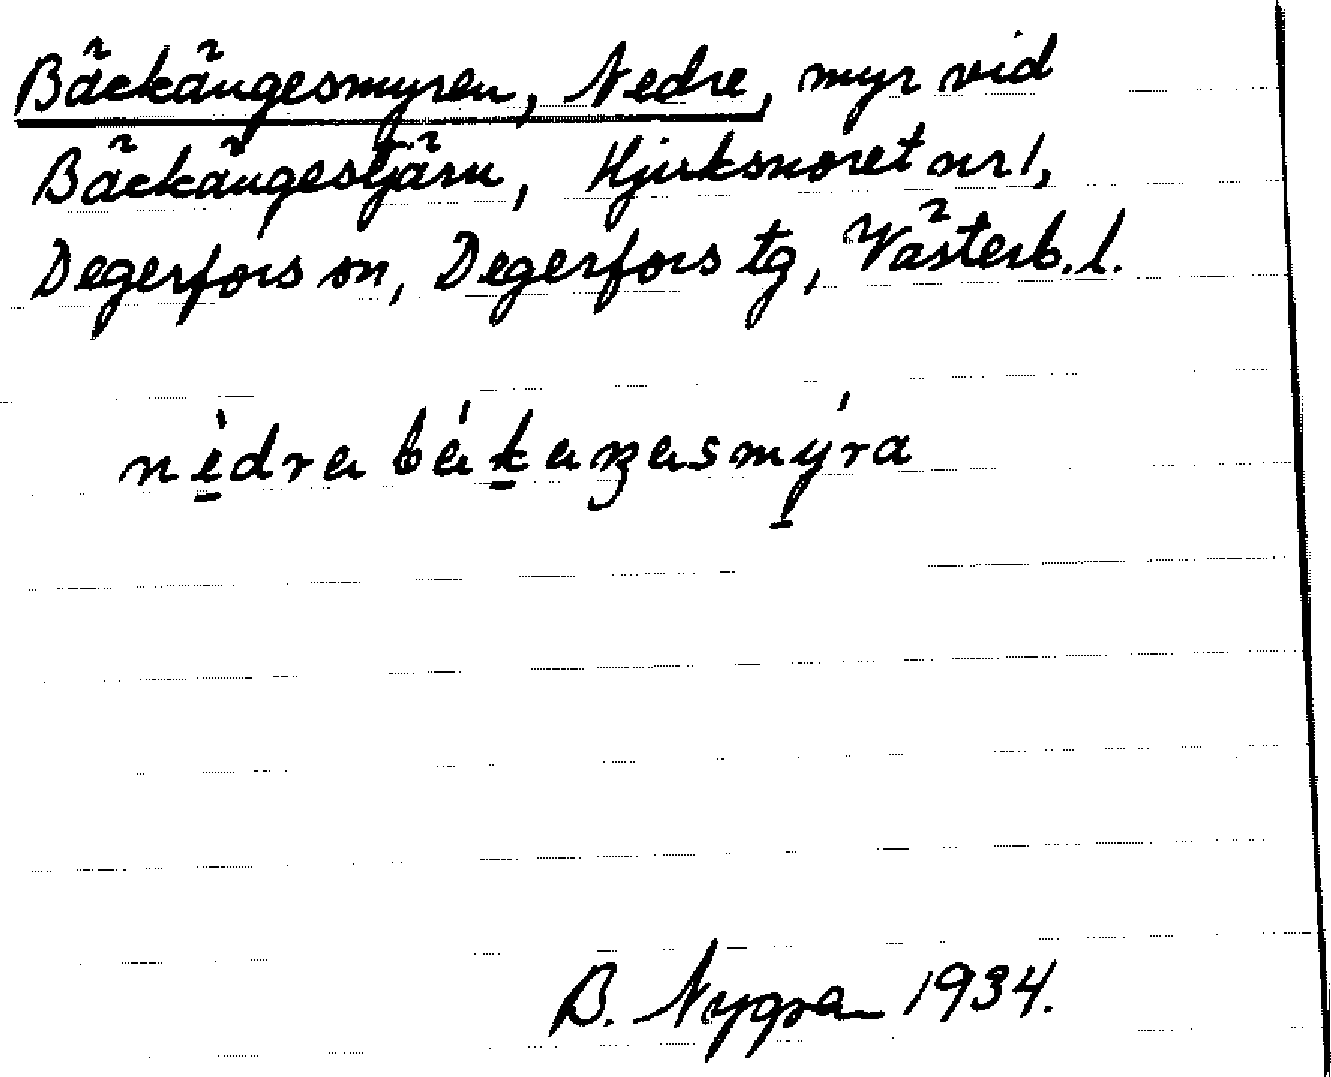 Bäckängesmyren, Nedre, myr vid
Bäckängestjärn, Hjuksnoret nr 1,
Degerfors sn, Degerfors tg, Västerb. l.
nèdra bákaŋasmýra
B. Nygren 1934.